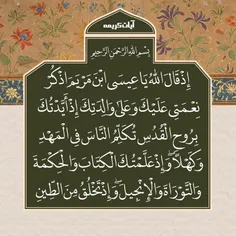 آیات کریمه
بِسْمِ اللهِ الرَّحْمنِ الرَّحِیمِ
إِذْ قَالَ اللهُ يَا عِيسَى ابْنَ مَرْيَمَ اذْكُرْ
نِعْمَتِي عَلَيْكَ وَعَلَىٰ وَالِدَتِكَ إِذْ أَيَّدْتُكَ
بِرُوحِ الْقُدُسِ تُكَلِّمُ النَّاسَ فِي الْمَهْدِ
وَكَهْلًا وَإِذْ عَلَّمْتُكَ الْكِتَابَ وَالْحِكْمَةَ
وَالتَّوْرَاةَ وَالْإِنْجِيلَ وَإِذْ تَخْلُقُ مِنَ الطِّينِ